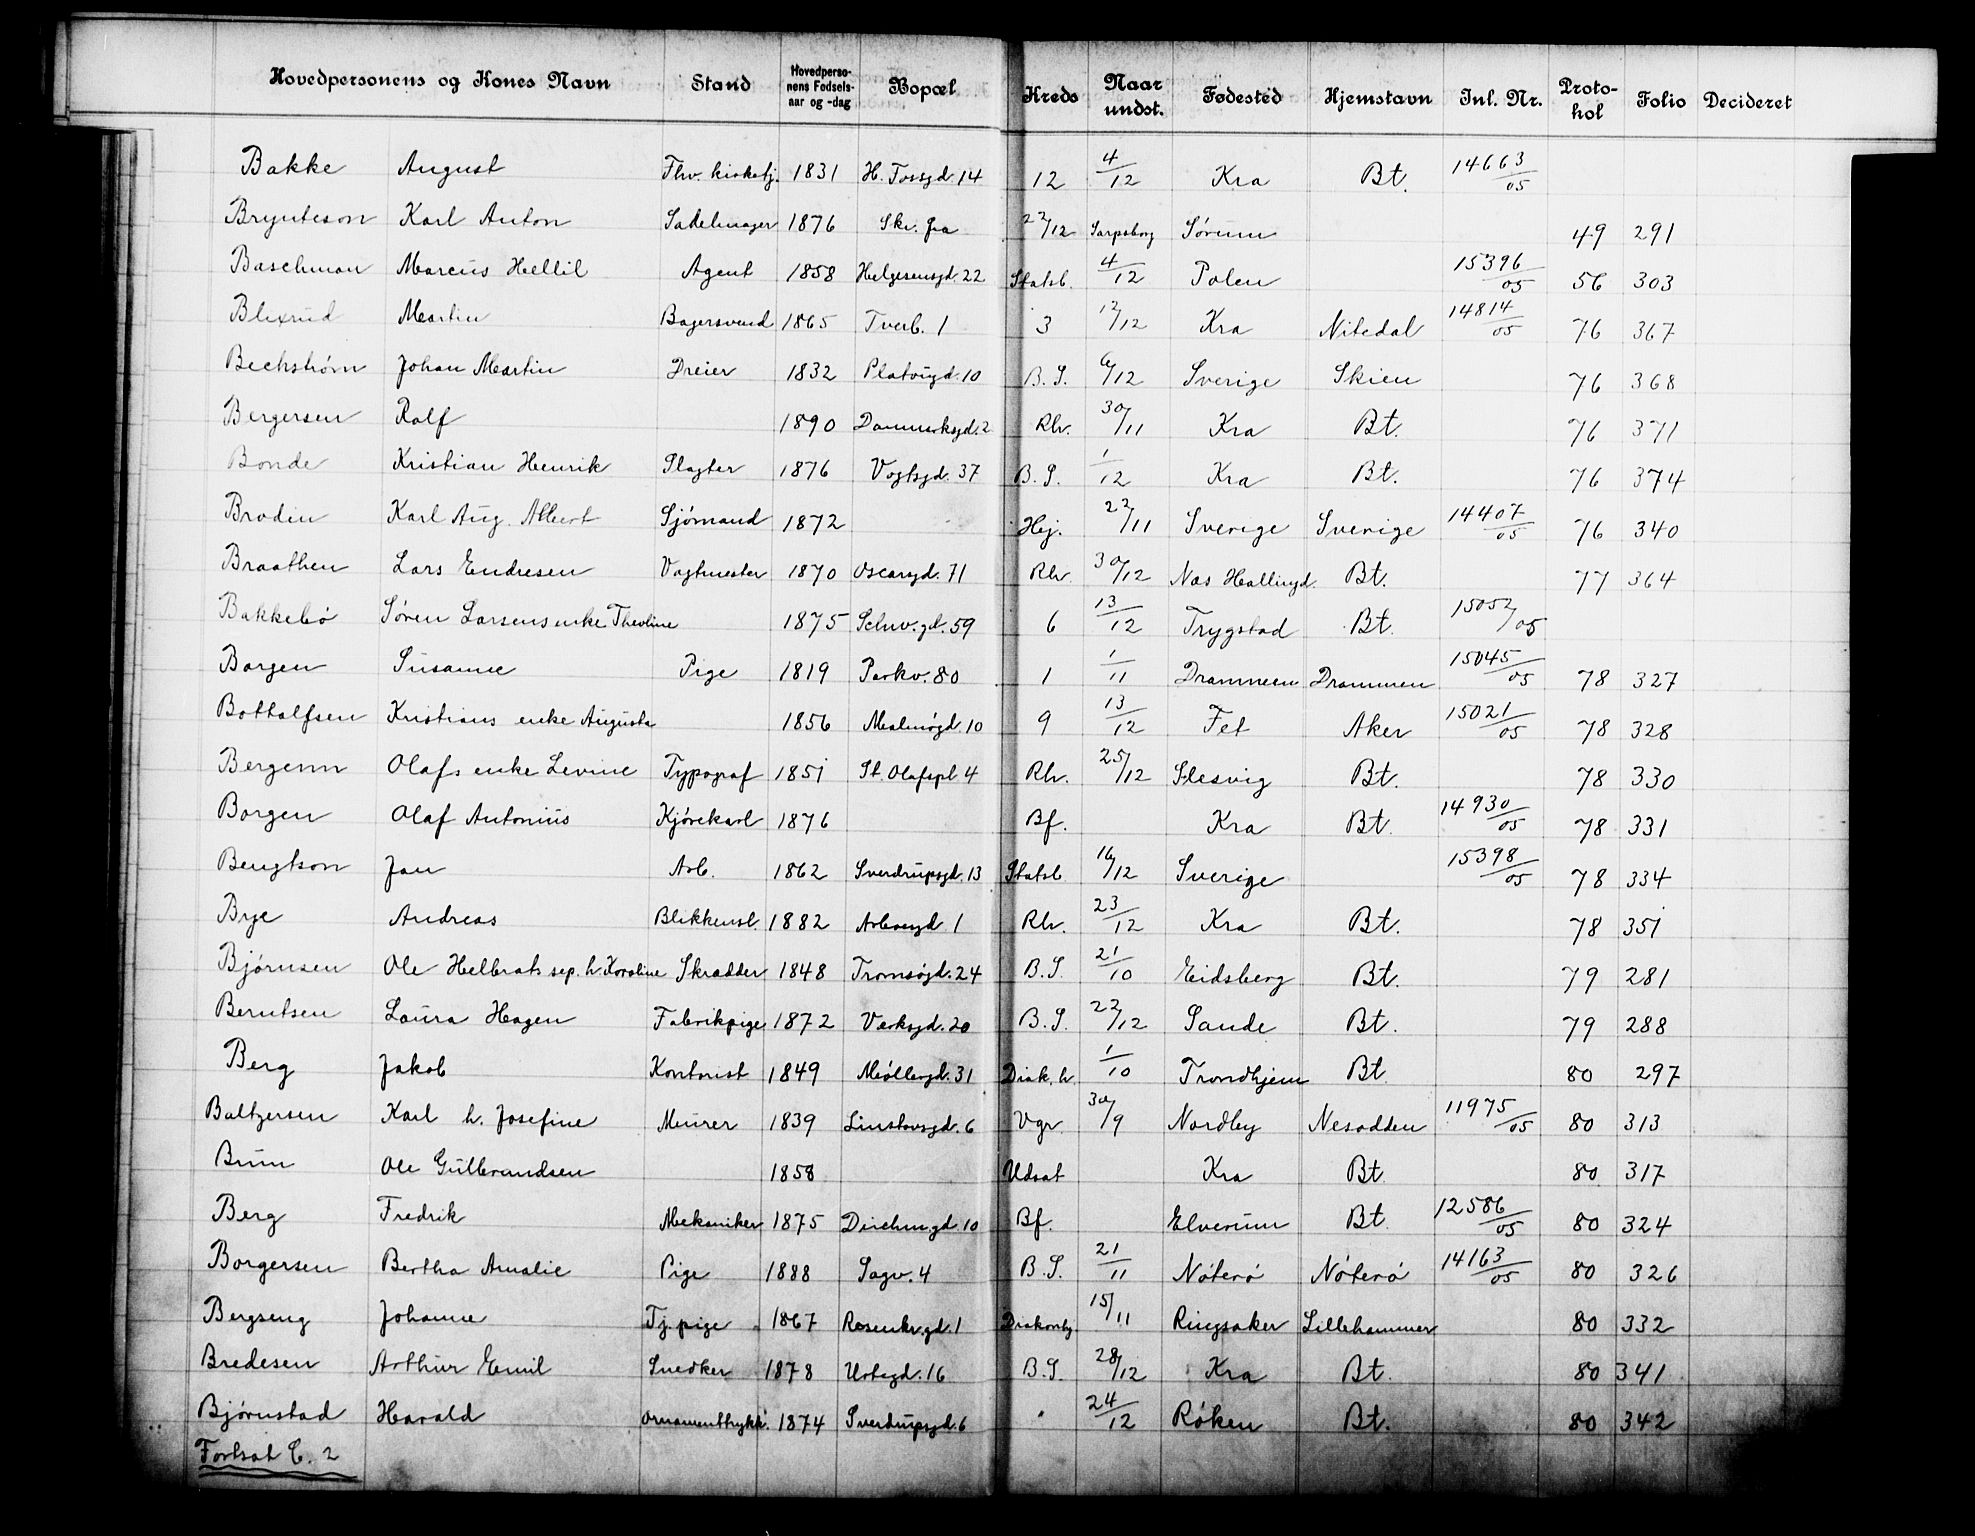 Hovedpersonens og Kones Navn Stand Hovedperso-nens Fødsels-aar og -dag Bopæl Kreds Naar undst. Fødested Hjemstavn Inl. Nr. Proto-kol Folio Decideret
Bakke August Fhv. kirketj. 1831 H. Tossgd 14 12 4/12 Kra Bt. 14663/05
Brynteson Karl Anton Sadelmager 1876 Skr. fra 22/12 Sarpsborg Sørum 49 291
Baschman Marcus Hellil Agent 1858 Helgesensgd. 22 Statsb. 4/12 Polen 15396/05 56 303
Blixrud Martin Bagersvend 1865 Tverb. 1 3 12/12 Kra Nitedal 14814/05 76 367
Beckstrøm Johan Martin Dreier 1832 Platougd. 10 B. S. 6/12 Sverige Skien 76 368
Bergersen Rolf 1890 Danmarksgd. 2 Rh. 30/11 Kra Bt. 76 371
Bonde Kristian Henrik Slagter 1876 Vogtsgd. 37 B. S. 1/12 Kra Bt. 76 374
Brodin Karl Aug. Albert Sjömand 1872 Hej. 22/11 Sverige Sverige 14407/05 76 340
Braathen Lars Endresen Vagtmester 1870 Oscarsgd. 71 Rh. 30/12 Nes Hallingd. Bt. 77 364
Bakkebö Søren Larsens enke Theoline 1875 Schw.gd. 59 6 13/12 Trygstad Bt. 15052/05
Borgen Susanne Pige 1819 Parkv. 80 1 1/11 Drammen Drammen 15045/05 78 327
Bottolfsen Kristians enke Augusta 1856 Malmøgd. 10 9 13/12 Fet Aker 15021/05 78 328
Bergenn Olafs enke Levine Typograf 1851 St. Olafspl 4 Rh. 25/12 Slesvig Bt. 78 330
Borgen Olaf Antonius Kjörekarl 1876 Bf. Kra Bt. 14930/05 78 331
Bengtson Jan Arb. 1862 Sverdrupsgd. 13 Statsb 16/12 Sverige 15398/05 78 334
Bye Andreas Blikkensl. 1882 Arbosgd. 1 Rh. 23/12 Kra Bt. 78 351
Bjørnsen Ole Helbrat sep. h. Karoline Skrædder 1848 Tromsøgd. 24 B. S. 21/10 Eidsberg Bt. 79 281
Berntsen Laura Hagen Fabrikpige 1872 Verksgd. 20 B. S. 22/12 Sande Bt. 79 288
Berg Jakob Kontorist 1849 Möllergd. 31 Diak. h. 1/10 Trondhjem Bt 80 297
Baltzersen Karl h. Josefine Murer 1839 Linstowsgd. 6 Vgr. 30/9 Nordby Nesodden 11975/05 80 313
Brun Ole Gulbrandsen 1858 Udsat Kra Bt 80 317
Berg Fredrik Mekaniker 1875 Dirchm.gd. 10 Bf. Elverum Bt. 12586/05 80 324
Borgersen Bertha Amalie Pige 1888 Sagv. 4 B. S. 21/11 Nöterö Nöterö 14163/05 80 326
Bergseng Johanne Tj.pige 1867 Rosenkr.gd. 1 Diakonhj. 15/11 Ringsaker Lillehammer 80 332
Bredesen Arthur Emil Snedker 1878 Urtegd. 16 B. S. 28/12 Kra Bt. 80 341
Bjørnstad Harald Ornamenttrykk. 1874 Sverdrupsgd. 6 " 24/12 Röken Bt. 80 342
Fortsat C. 2